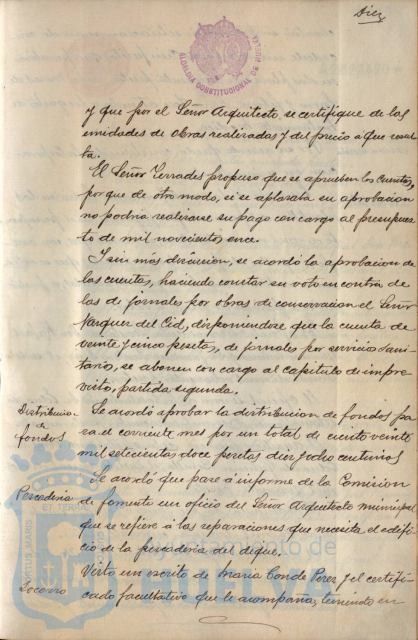 Diez
ALCALDIA CONSTITUCIONAL DE HUELVA
y que por el Señor Arquitecto se certifique de las
unidades de obras realizadas y del precio a que resul
ta.
El Señor Terrades propuso que se aprueben las cuentas,
porque de otro modo, si se aplazaba su aprobacion
no podria realizarse su pago con cargo al presupues
to de mil novecientos once.
I sin más discusion, se acordó la aprobacion de
las cuentas, haciendo constar su voto en contra de
las de jornales por obras de conservacion el Señor
Vazquez del Cid, disponiendose que la cuenta de
veinte y cinco pesetas, de jornales por servicio sani
tario, se abonen con cargo al capitulo de impre
vistos, partida segunda.
Distribucion
de
fondos
Se acordó aprobar la distribucion de fondos pa
ra el corriente mes por un total de ciento veinte
mil setecientas doce pesetas diez y ocho centimos
Pescaderia
Se acordó que pase á informe de la Comision
de fomento un oficio del Señor Arquitecto municipal
que se refiere á las reparaciones que necesita el edifi
cio de la pescaderia del dique.
Socorro
Visto un escrito de Maria Conde Perez y el certifi
cado facultativo que le acompaña; teniendo en
Ayuntamiento de